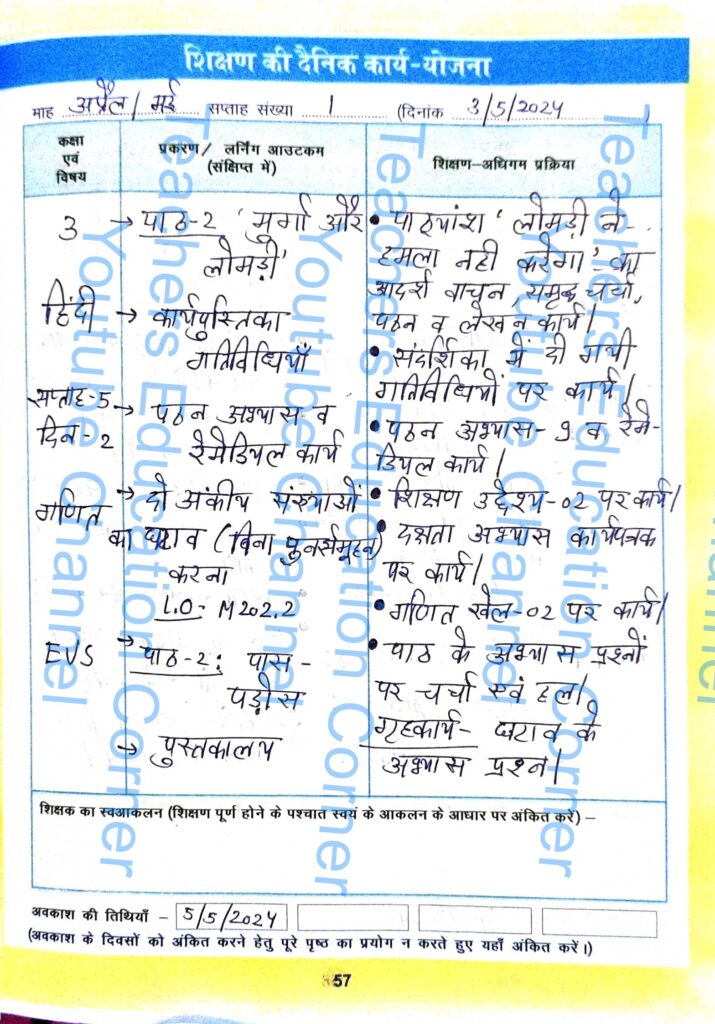 शिक्षण की दैनिक कार्य-योजना
माह अप्रैल/मई सप्ताह संख्या 1 (दिनांक 3/5/2024 )
कक्षा एवं विषय
प्रकरण/ लर्निंग आउटकम (संक्षिप्त में)
शिक्षण-अधिगम प्रक्रिया
3
हिंदी
सप्ताह-5
दिन-2
गणित
EVS
→ पाठ-2 'मुर्गा और
लोमड़ी'
→ कार्यपुस्तिका
गतिविधियाँ
→ पठन अभ्यास व
रेमेडियल कार्य
→ दो अंकीय संख्याओं
का घटाव (बिना पुनर्समूहन)
करना
L.O- M202.2
→ पाठ-2: पास-
पड़ोस
→ पुस्तकालय
• पाठ्यांश 'लोमड़ी ने
हमला नही करेगा' का
आदर्श वाचन, समूह चर्चा,
पठन व लेखन कार्य।
• संदर्शिका में दी गयी
गतिविधियों पर कार्य।
• पठन अभ्यास-9 व रेमे-
डियल कार्य।
• शिक्षण उद्देश्य-02 पर कार्य।
• दक्षता अभ्यास कार्यपत्रक
पर कार्य।
• गणित खेल-02 पर कार्य।
• पाठ के अभ्यास प्रश्नों
पर चर्चा एवं हल।
गृहकार्य- घटाव के
अभ्यास प्रश्न।
शिक्षक का स्वआकलन (शिक्षण पूर्ण होने के पश्चात स्वयं के आकलन के आधार पर अंकित करें) –
अवकाश की तिथियाँ – 5/5/2024
(अवकाश के दिवसों को अंकित करने हेतु पूरे पृष्ठ का प्रयोग न करते हुए यहाँ अंकित करें।)
57
Teachers Education Corner
Youtube Channel
Teachers Education Corner
Youtube Channel
Teachers Education Corner
Youtube Channel